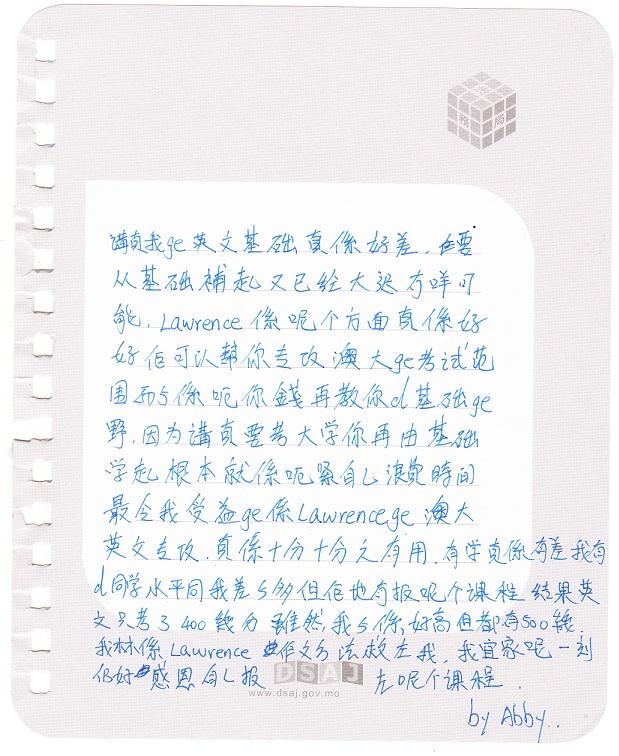 務 局
講真我ge英文基础真係好差,但要
从基础補起又已经太迟冇咩可
能,Lawrence係呢个方面真係好
好佢可以幫你专攻澳大ge考试范
围而5係呃你錢再教你d基础ge
野,因为講真要考大学你再由基础
学起根本就係呃緊自己浪費時间
最令我受益ge係Lawrence ge澳大
英文专攻,真係十分十分之有用,有学真係有差我有
d同学水平同我差5多但佢地冇报呢个课程结果英
文只考了400幾分雖然我5係好高但都有500幾,
我林係Lawrence 作文方法救左我,我宜家呢一刻
仍好感恩自己报左呢个课程.
by Abby..
DSAJ
www.dsaj.gov.mo